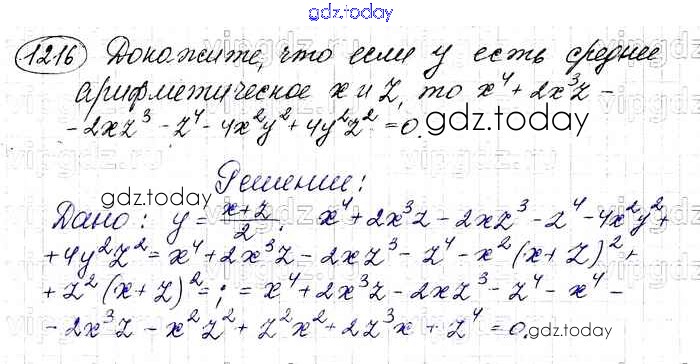 gdz.today
1216 Докажите, что если y есть среднее
арифметическое x и z, то x⁴ + 2x³z -
- 2xz³ - z⁴ - 4x²y² + 4y²z² = 0.
gdz.today
Решение:
gdz.today
Дано: y = (x+z)/2; x⁴ + 2x³z - 2xz³ - z⁴ - 4x²y² +
+ 4y²z² = x⁴ + 2x³z - 2xz³ - z⁴ - x²(x + z)² +
+ z²(x+z)² = ; = x⁴ + 2x³z - 2xz³ - z⁴ - x⁴ -
- 2x³z - x²z² + z²x² + 2z³x + z⁴ = 0.
gdz.today